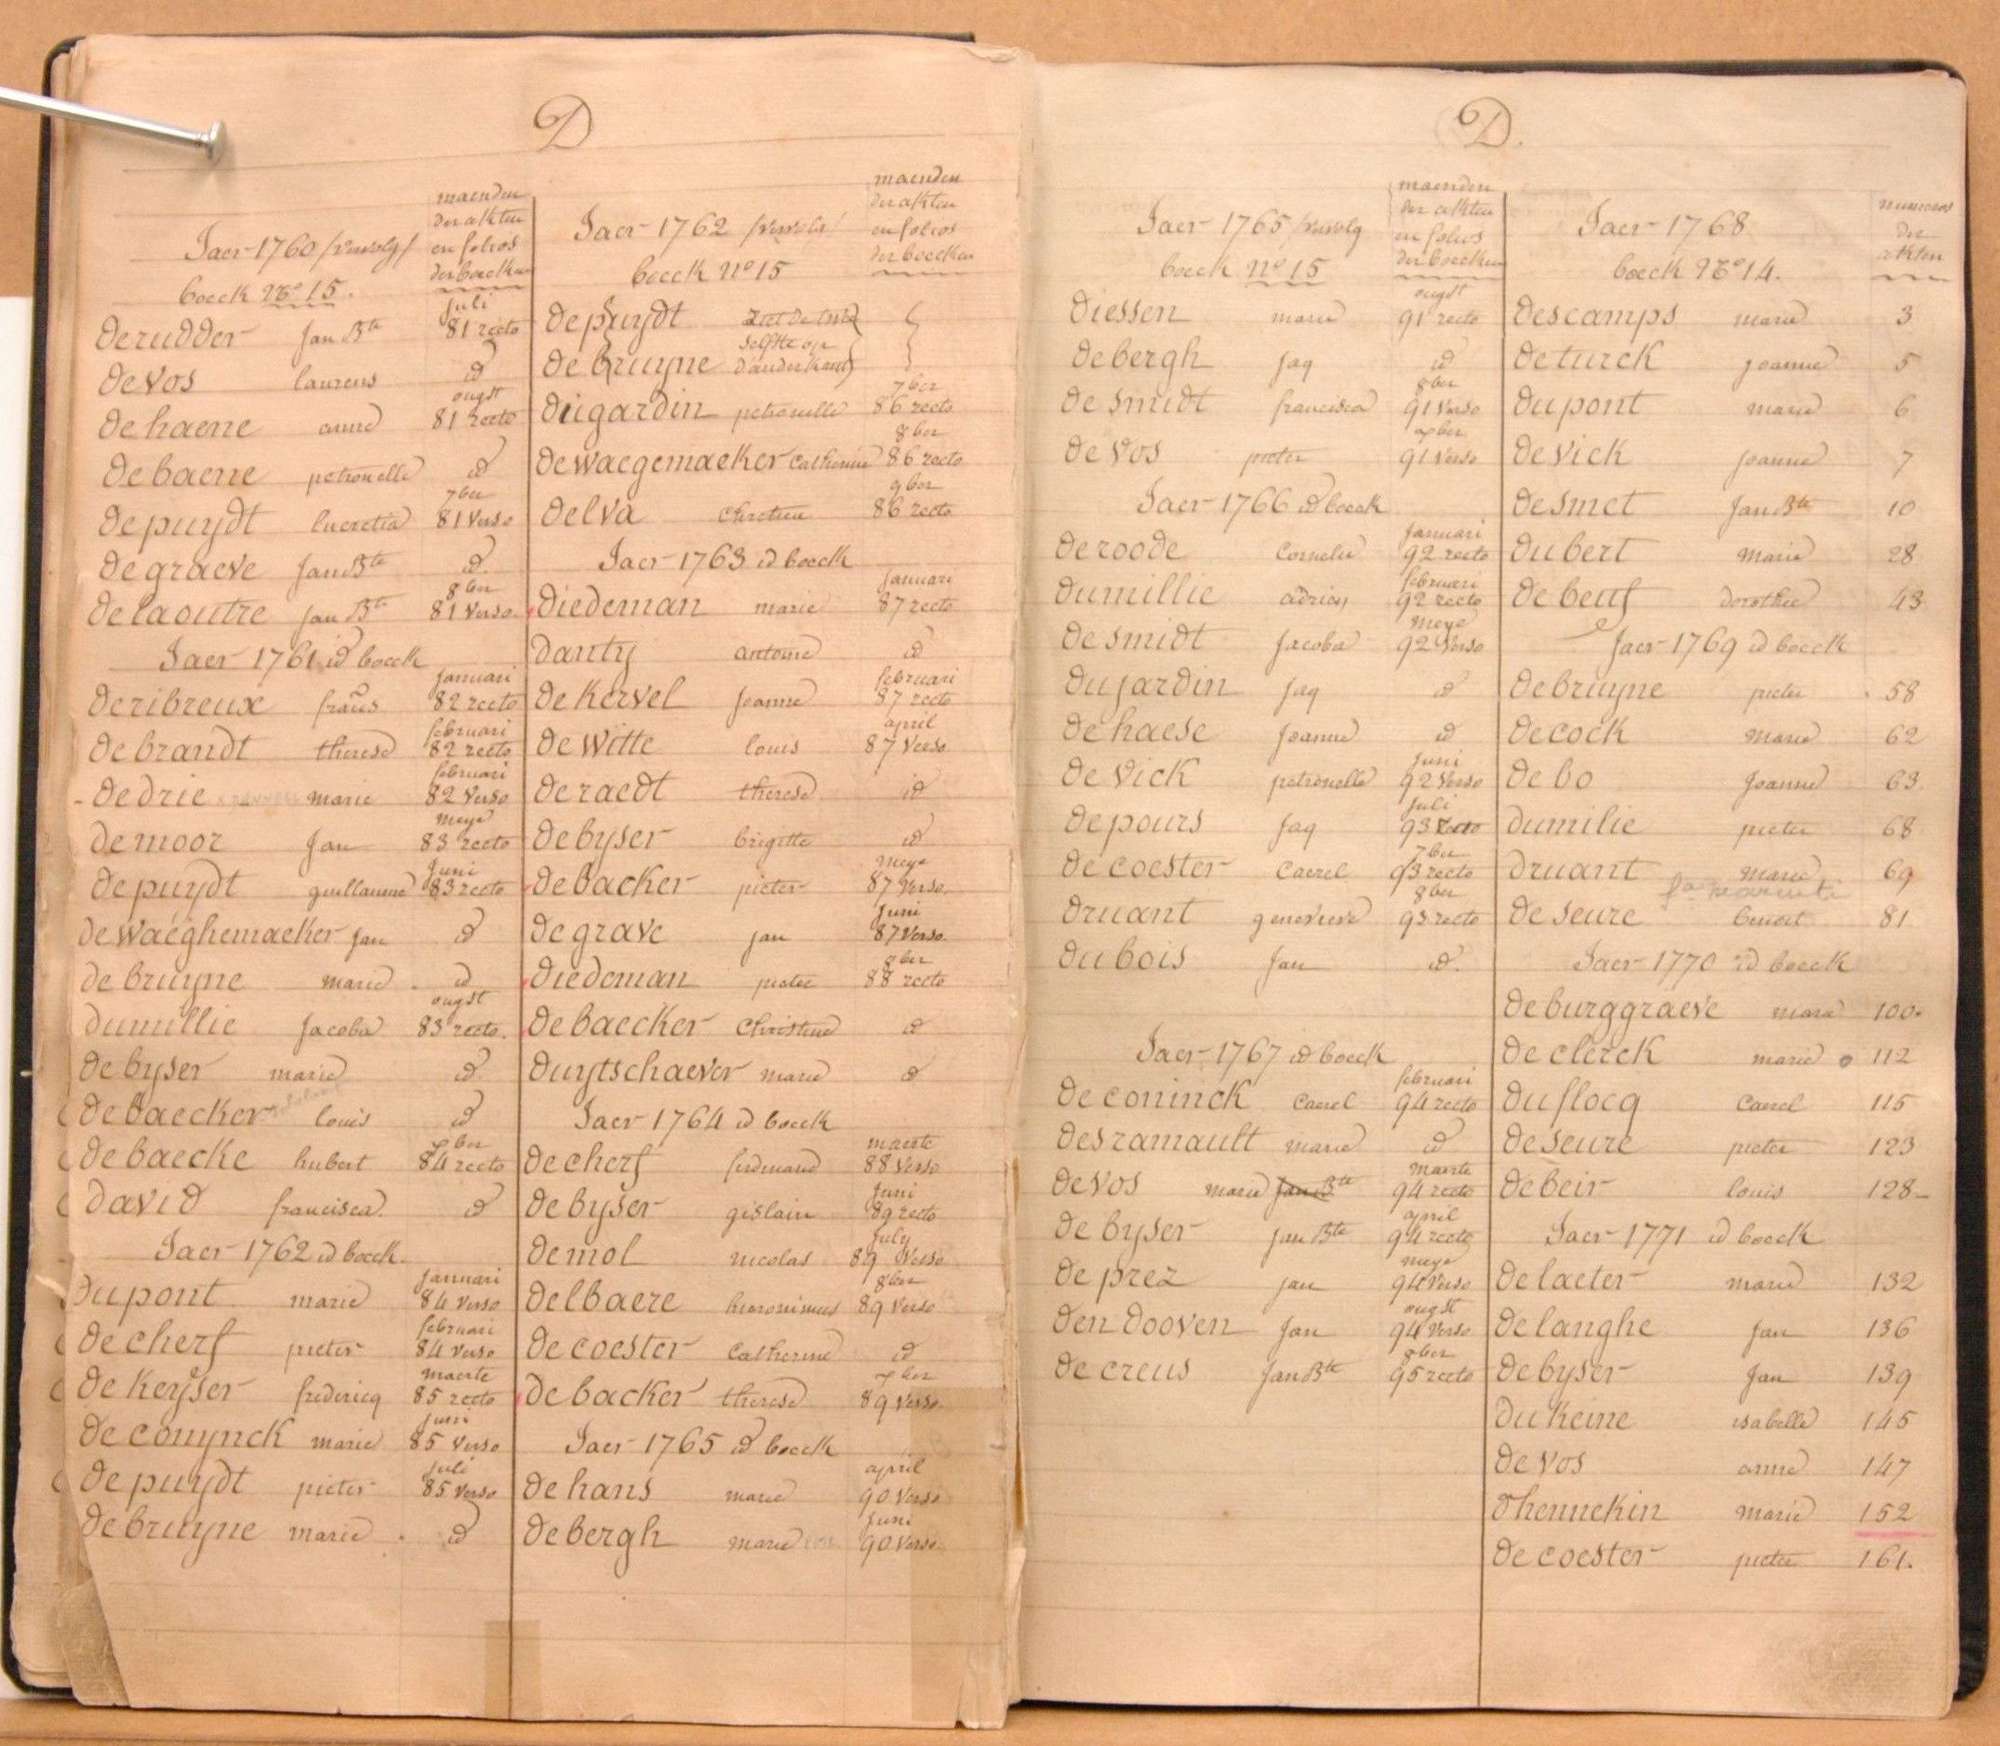 D
Jaer 1760 /vervolg/
boeck No 15.
maenden
der akten
en folios
der boecken
derudder Jan Bte juli 81 recto
de vos laurens id
de haene anne ougst 81 recto
de baene petronelle id
de puydt lucretia 7ber 81 verso
de graeve Jan Bte id
de laoutre Jan Bte 8ber 81 verso
Jaer 1761 id boeck
de ribreux frans januari 82 recto
de brandt therese februari 82 recto
de drie marie februari 82 verso
de moor Jan meye 83 recto
de puydt guillaume juni 83 recto
de waeghemaeker Jan id
de bruyne marie id
dumillie Jacoba ougst 83 recto.
de byser marie id
de baecker louis id
de baecke hubert xber 84 recto
david francisca id
Jaer 1762 id boeck.
dupont marie januari 84 verso
de cherf pieter februari 84 verso
de keyser fredericq maerte 85 recto
de conynck marie juni 85 verso
de puydt pieter juli 85 verso
de bruyne marie id
Jaer 1762 /vervolg/
boeck No 15
maenden
der akten
en folios
der boecken
de puydt ziet de twee
de bruyne selfste op d'anderkant
dugardin petronelle 7ber 86 recto
de waegemaeker catherine 8ber 86 recto
delva chretien 9ber 86 recto
Jaer 1763 id boeck
diedeman marie januari 87 recto
danty antoine id
de kervel Joanne februari 87 recto
de witte louis april 87 verso
de raedt therese id
de byser brigitte id
de backer pieter meye 87 verso.
de grave jan juni 87 verso.
diedeman pieter 8ber 88 recto
de baecker christine id
duytschaever marie id
Jaer 1764 id boeck
de cherf ferdinand maerte 88 verso
de byser gislain juni 89 recto
de mol nicolas july 89 verso
delbaere hieronimus 8ber 89 verso
de coester catherine id
de backer therese xber 89 verso
Jaer 1765 id boeck
de hans marie april 90 verso
de bergh marie juni 90 verso
D.
Jaer 1765 /vervolg
boeck No 15
maenden
der akten
en folios
der boecken
diessen marie ougst 91 recto
de bergh jaq id
de smidt francisca 8ber 91 verso
de vos pieter xber 91 verso
Jaer 1766 id boeck
de roode cornelie januari 92 recto
dumillie adrien februari 92 recto
de smidt Jacoba meye 92 verso
dujardin jaq id
de haese Joanne id
de vick petronelle juni 92 verso
de pours jaq juli 93 recto
de coester caerel 7ber 93 recto
druant genevieve 8ber 93 recto
dubois Jan id.
Jaer 1767 id boeck
de coninck caerel februari 94 recto
desramault marie id
de vos marie Jan Bte maerte 94 recto
de byser Jan Bte april 94 recto
de prez jan meye 94 verso
den dooven Jan ougst 94 verso
de creus Jan Bte 9ber 95 recto
Jaer 1768
boeck No 14.
numeros
der
akten
descamps marie 3
de turck joanne 5
dupont marie 6
de vick joanne 7
de smet Jan Bte 10
dubert marie 28
de beuf dorothee 43
Jaer 1769 id boeck
de bruyne pieter 58
de cock marie 62
de bo Joanne 63
dumilie pieter 68
druant marie 69
de seure benoit 81
Jaer 1770 id boeck
de burggraeve mari 100.
de clerck marie 112
duflocq caerel 115
de seure pieter 123
de beir louis 128
Jaer 1771 id boeck
de laeter marie 132
de langhe Jan 136
de byser Jan 139
dukeine isabelle 145
de vos anne 147
d'hennekin marie 152
de coester pieter 161.